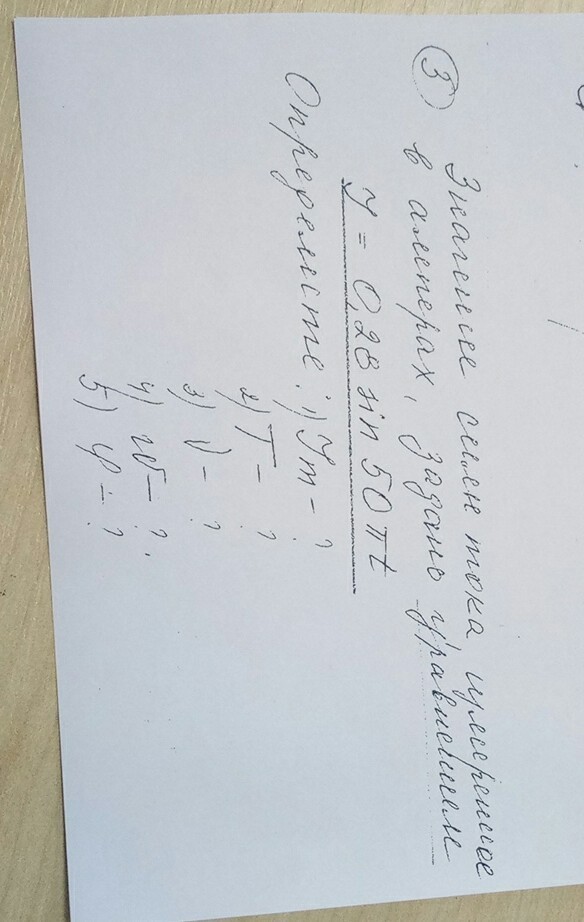 3 Значение силы тока, измеренное
в амперах, задано уравнением
I = 0,28 sin 50 πt
Определите: 1) Im - ?
2) T - ?
3) ν - ?
4) w - ?
5) φ - ?